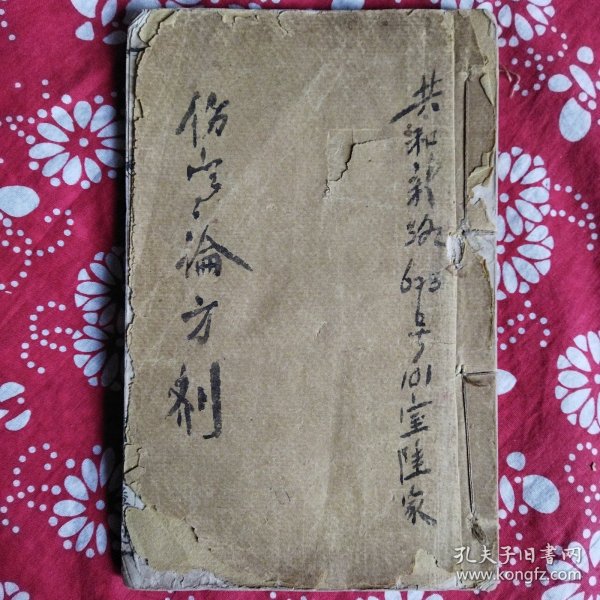 共和新路673号101室陆家
伤寒论方剂
孔夫子旧书网
www.kongfz.com